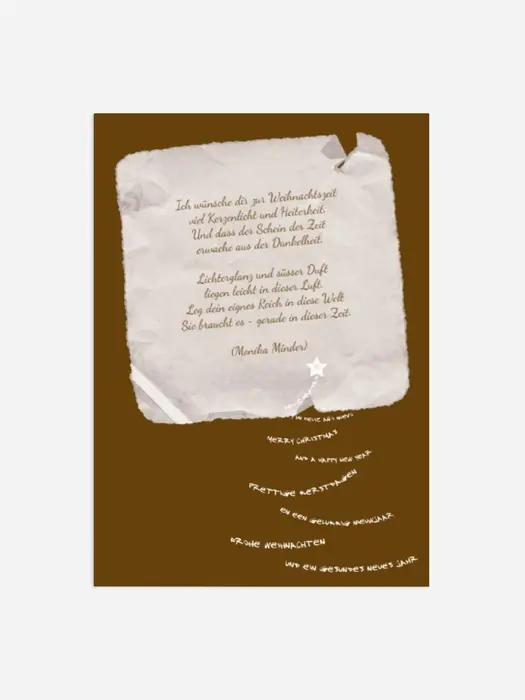 Ich wünsche dir zur Weihnachtszeit
viel Kerzenlicht und Heiterkeit.
Und dass der Schein der Zeit
erwache aus der Dunkelheit.
Lichterglanz und süsser Duft
liegen leicht in dieser Luft.
Leg dein eignes Reich in diese Welt
Sie braucht es - gerade in dieser Zeit.
(Monika Minder)
MERRY CHRISTMAS
AND A HAPPY NEW YEAR
PRETTIGE KERSTDAGEN
EN EEN GELUKKIG NIEUWJAAR
FROHE WEIHNACHTEN
UND EIN GESUNDES NEUES JAHR